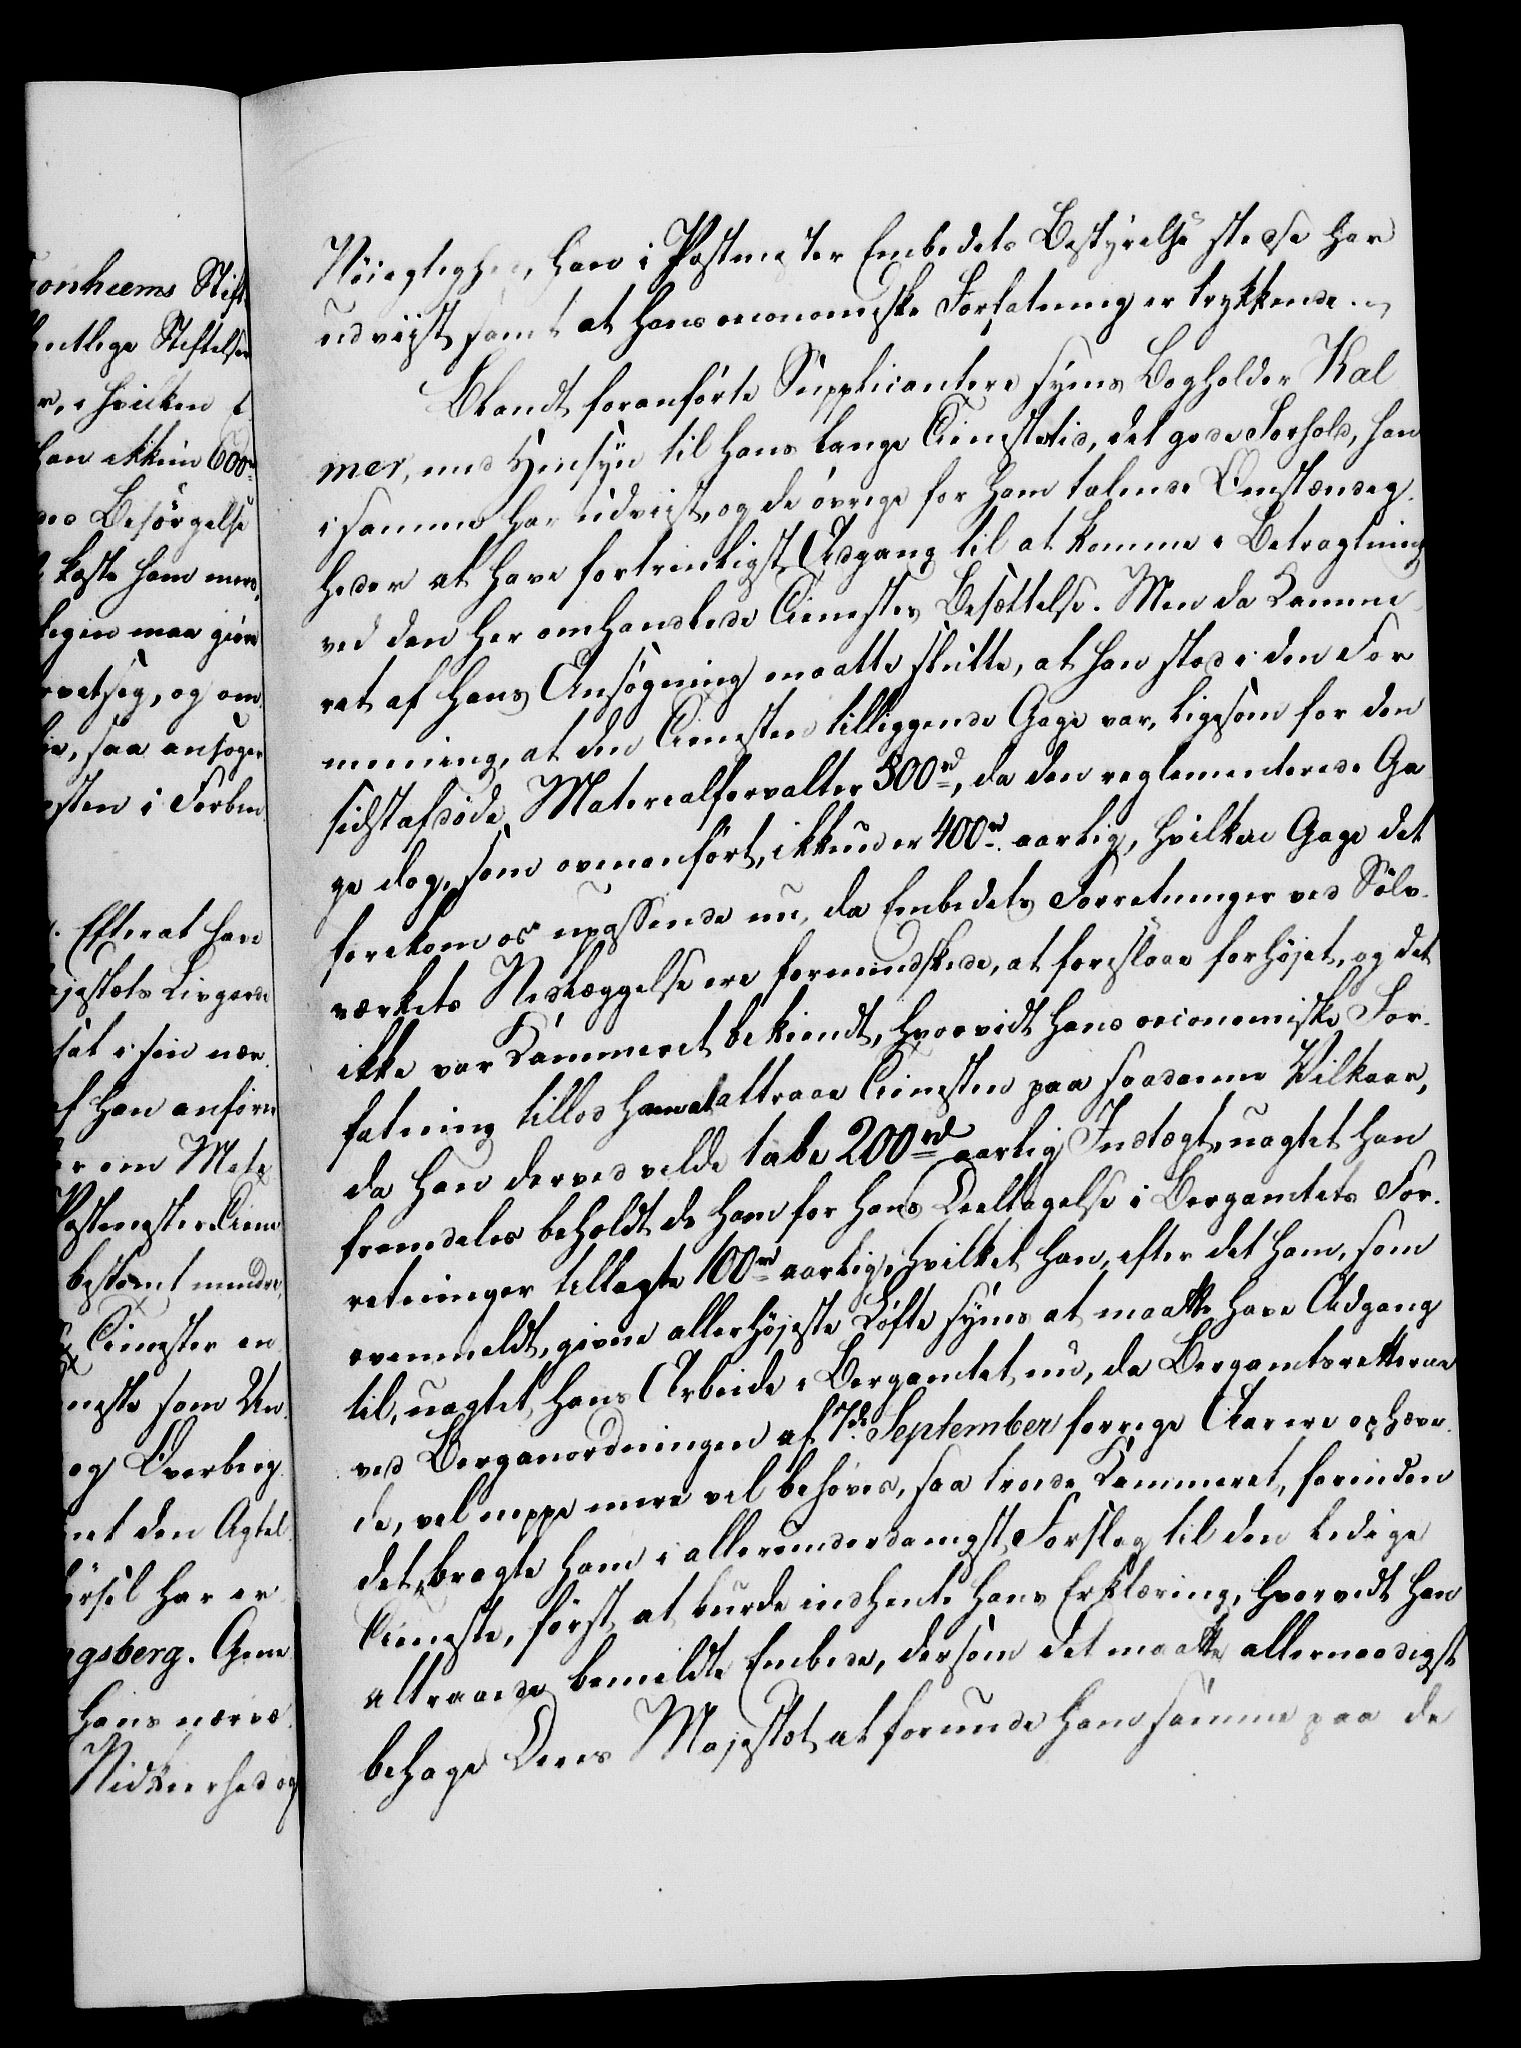 ronheems Stift
hentlige Stiftelser
r, i hvilken E
han ikkun 600rd
des Besørgelse
koste ham meer,
legen maa giøre
rvetsig, og om
ie, saa ansøger
esten i Forbin
. Efterat have
ajestæts Livgarde
sat i sin nær
f han anfører
r om Mate
Postmester Tiene
bestemt mindre,
Tienester en
neste som Un
og Overberg
net den Agtel
hørsel har er
ngsberg. Gene
hans nærvæ
Nidkierhed og
Nøiagtighed, han i Postmester Embedets Bestyrelse stedse har
udviist samt at hans oeconomiske Forfatning er trykkende.
Blandt foranførte Supplicantere synes Bogholder Kal
mer, med Hensyn til hans lange Tienestetid, det gode Forhold, han
i samme har udviist, og de øvrige for ham talende Omstændig
heder at have fortrinligst Adgang til at komme i Betragtning
ved den her omhandlede Tienestes Besættelse. Men da Kamme
ret af hans Ansøgning maatte slutte, at han stod i den For
mening, at den Tienesten tilliggende Gage var, ligesom for den
sidstafdøde Materialforvalter 500rd, da den reglementerede Ga
ge dog, som ovenanført, ikkun er 400rd aarlig, hvilken Gage det
forekom os upassende nu, da Embedets Forretninger ved Sølv
værkets Nedlæggelse ere formindskede, at foreslaae forhøjet, og det
ikke var Kammeret bekiendt, hvorvidt hans oeconomiske For
fatning tillod ham at attraae Tienesten paa saadanne Vilkaar,
da han derved vilde tabe 200rd aarlig Indtægt, uagtet han
fremdeles beholdt de ham for hans Deeltagelse i Bergamtets For
retninger tillagte 100rd aarlig, hvilket han, efter det ham, som
ovenmeldt, givne allerhøjeste Løfte synes at maatte have Adgang
til, uagtet hans Arbeide i Bergamtet nu, da Bergamtsretterne
ved Berganordningen af 7de September forrige Aar ere ophæve
de, vel neppe mere vel behøves, saa troede Kammeret, forinden
det bragte ham i allerunderdanigst Forslag til den ledige
Tieneste, først at burde indhente hans Erklæring, hvorvidt han
attraaede bemeldte Embede, dersom det maatte allernaadigst
behage Deres Majestæt at forunde ham samme paa de